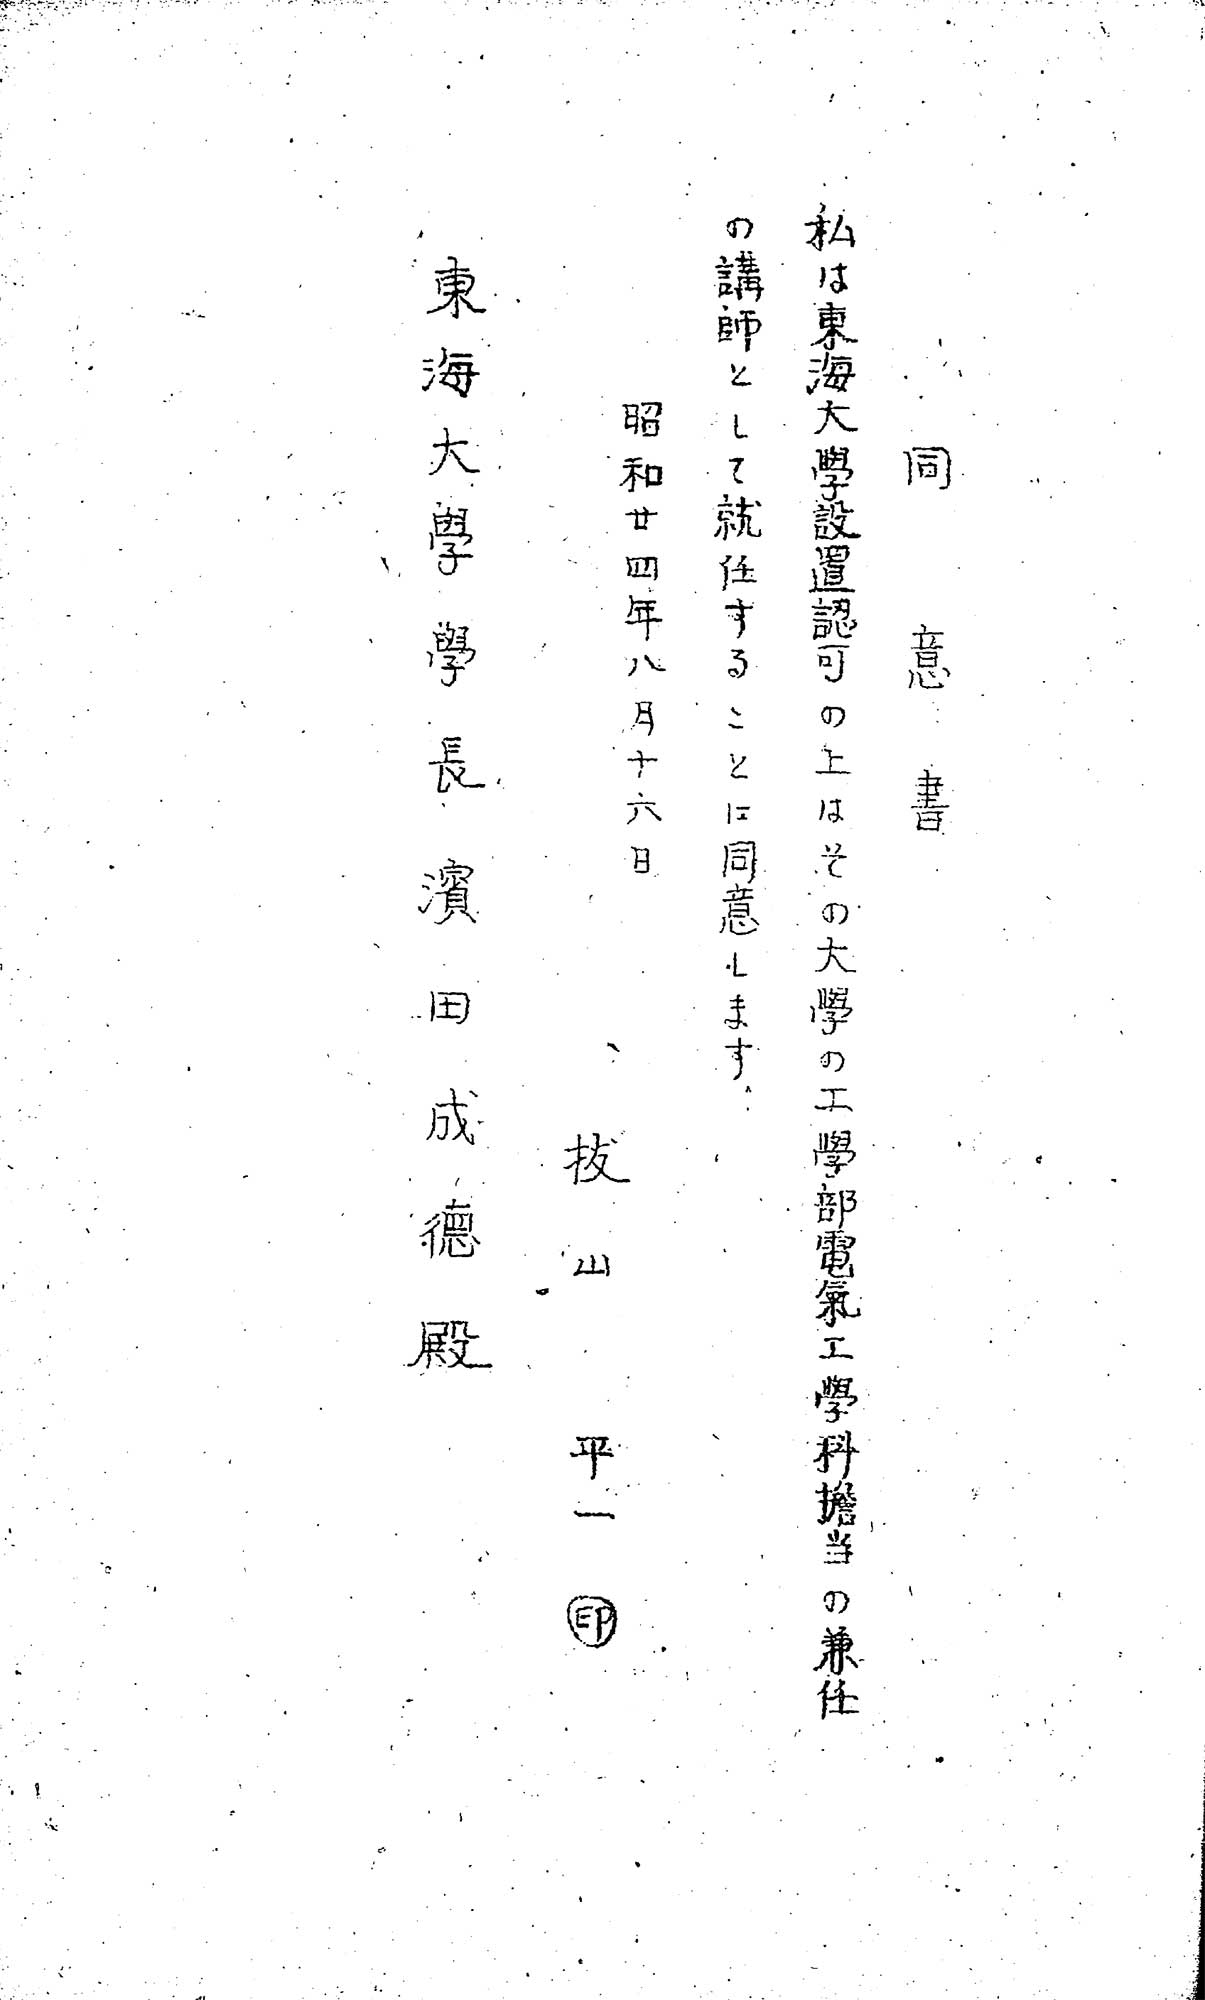 同意書
私は東海大學設置認可の上はその大學の工學部電氣工學科擔当の兼任
の講師として就任することに同意します.
昭和廿四年八月十六日
抜山平一 印
東海大學學長濱田成德殿